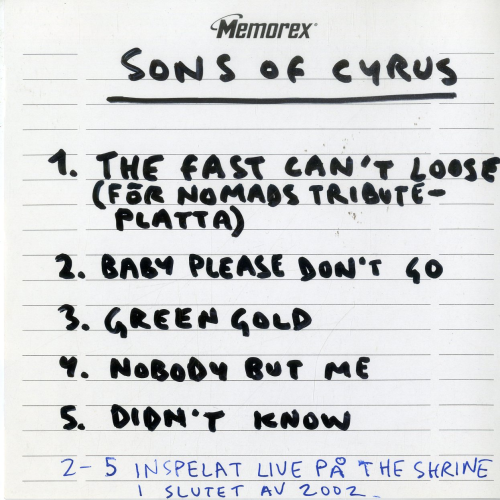 Memorex
SONS OF CYRUS
1. THE FAST CAN'T LOOSE
(FÖR NOMADS TRIBUTE-
PLATTA)
2. BABY PLEASE DON'T GO
3. GREEN GOLD
4. NOBODY BUT ME
5. DIDN'T KNOW
2-5 INSPELAT LIVE PÅ THE SHRINE
I SLUTET AV 2002.